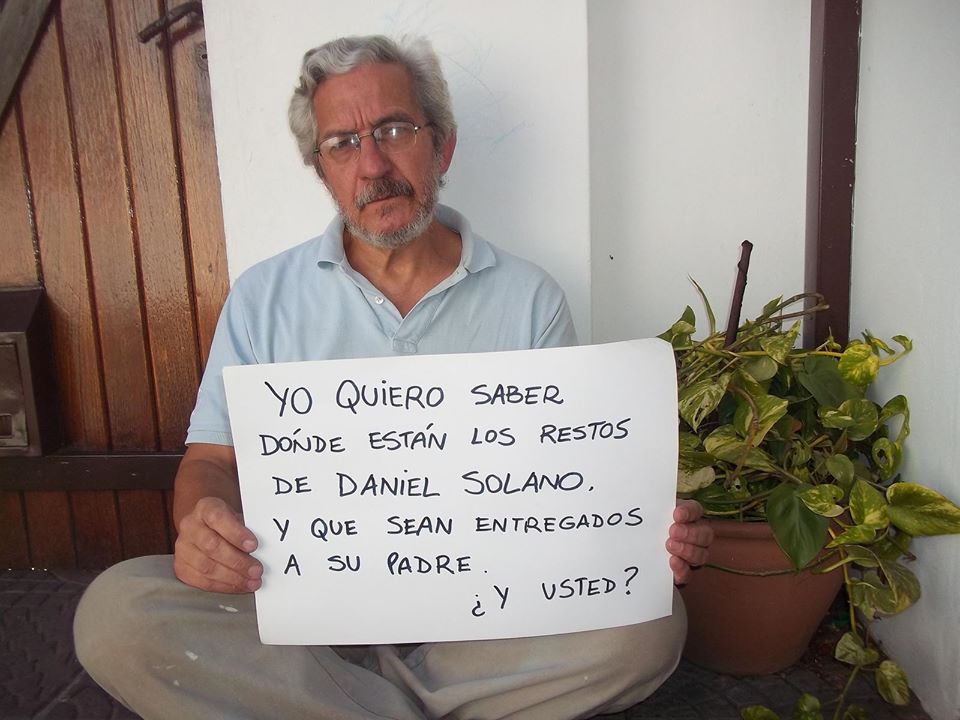 YO QUIERO SABER
DÓNDE ESTÁN LOS RESTOS
DE DANIEL SOLANO.
Y QUE SEAN ENTREGADOS
A SU PADRE.
¿Y USTED?